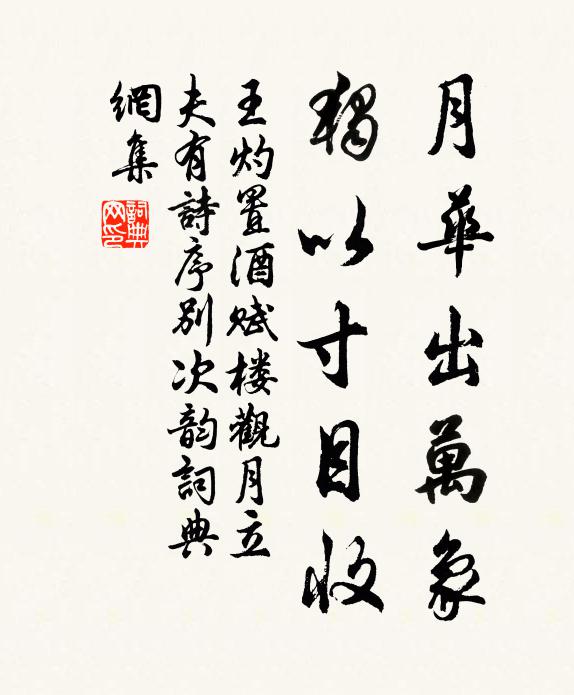 月華出萬象
獨以寸目收
王灼置酒賦楼觀月立
夫有詩序别次韵詞典
網集
詞典
网印